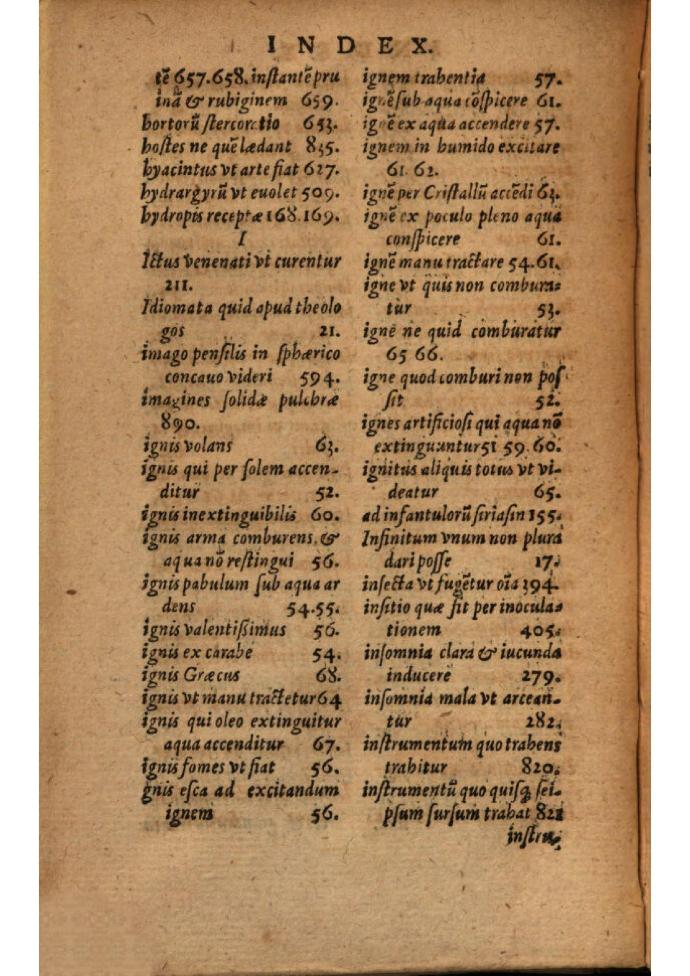 I N D E X.
tẽ 657.658. inſtantẽ pru
inã & rubiginem 659.
hortorũ ſtercoratio 653.
hoſtes ne quẽ lædant 835.
hyacintus vt arte fiat 627.
hydrargyrũ vt euolet 509.
hydropis receptæ 168.169.
I
Ictus venenati vt curentur
211.
Idiomata quid apud theolo
gos 21.
imago penſilis in ſphærico
concauo videri 594.
imagines ſolidæ pulchræ
890.
ignis volans 63.
ignis qui per ſolem accen-
ditur 52.
ignis inextinguibilis 60.
ignis arma comburens, &
aqua nõ reſtingui 56.
ignis pabulum ſub aqua ar
dens 54.55.
ignis valentiſſimus 56.
ignis ex carabe 54.
ignis Græcus 68.
ignis vt manu tractetur 64
ignis qui oleo extinguitur
aqua accenditur 67.
ignis fomes vt fiat 56.
gnis eſca ad excitandum
ignem 56.
ignem trahentia 57.
ignẽ ſub aqua cõſpicere 61.
ignẽ ex aqua accendere 57.
ignem in humido excitare
61. 62.
ignẽ per Criſtallũ accẽdi 63.
ignẽ ex poculo pleno aqua
conſpicere 61.
ignẽ manu tractare 54.61.
igne vt quis non combura-
tur 53.
igne ne quid comburatur
65 66.
igne quod comburi non poſ
ſit 52.
ignes artificioſi qui aqua nõ
extinguuntur 51 59.60.
ignitus aliquis totus vt vi-
deatur 65.
ad infantulorũ ſiriaſin 155.
Infinitum vnum non plura
dari poſſe 17.
inſecta vt fugẽtur oĩa 394.
inſitio quæ fit per inocula-
tionem 405.
inſomnia clara & iucunda
inducere 279.
inſomnia mala vt arcean-
tur 282.
inſtrumentum quo trahens
trahitur 820.
inſtrumentũ quo quiſq; ſei-
pſum ſurſum trahat 821
inſtru-